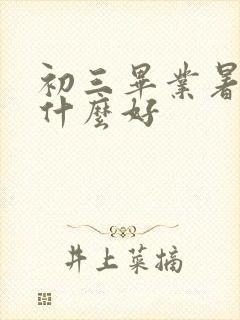 初三畢業暑
什麼好
井上菜摘